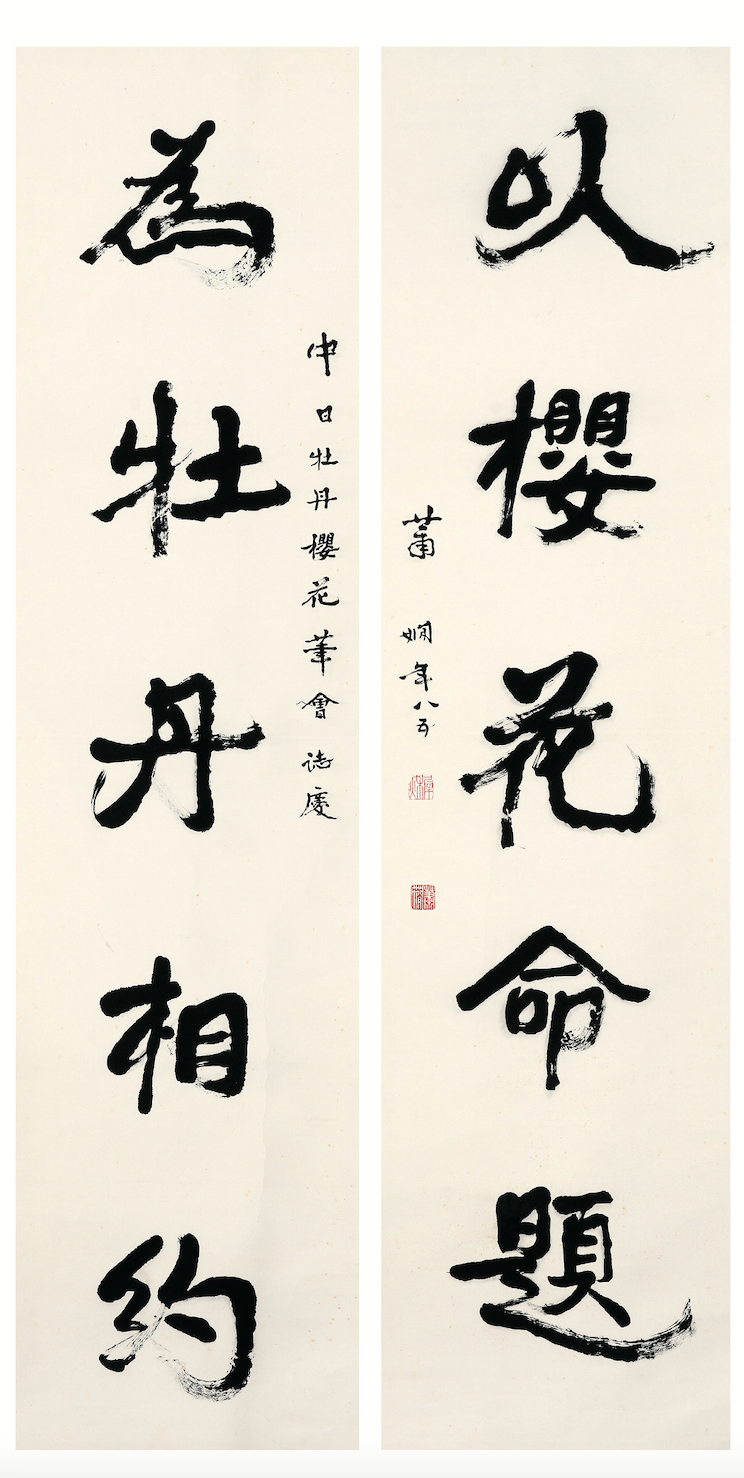 以櫻花命題
蕭嫻年八五
中日牡丹櫻花筆會誌慶
為牡丹相約